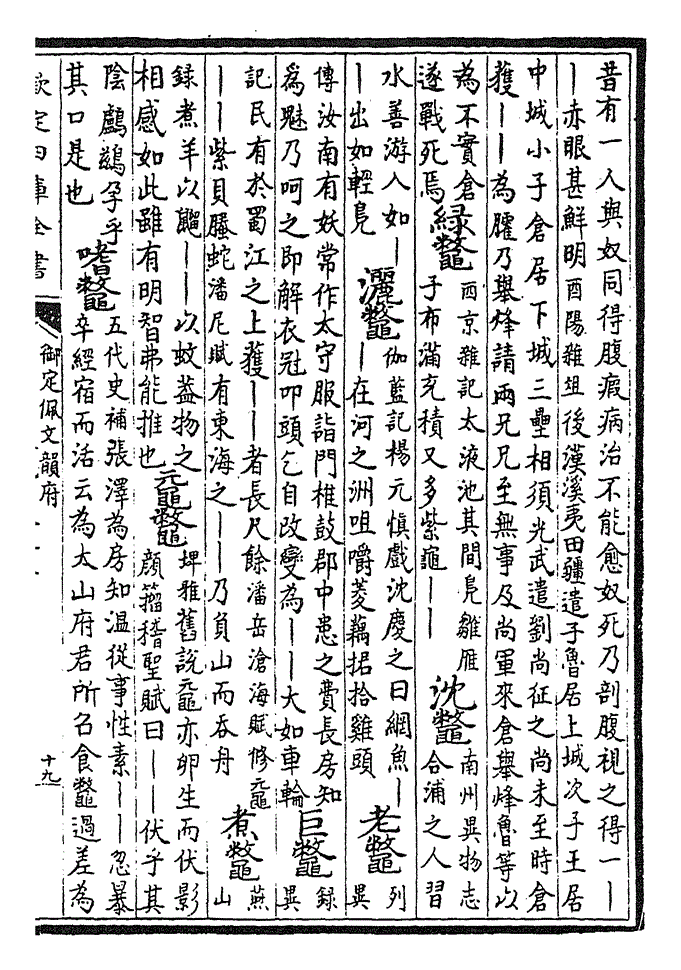 昔有一人與奴同得腹瘕病治不能愈奴死乃剖腹視之得一｜
｜赤眼甚鮮明酉陽雜俎後漢溪夷田疆遣子魯居上城次子王居
中城小子倉居下城三壘相須光武遣劉尚征之尚未至時倉
獲｜｜為臛乃舉烽請兩兄兄至無事及尚軍來倉舉烽魯等以
為不實倉
遂戰死焉
綠鼈
西京雜記太液池其間鳧雛雁
子布滿充積又多紫龜｜｜
沈鼈
南州異物志
合浦之人習
水善游入如｜
｜出如輕鳧
灑鼈
伽藍記楊元慎戲沈慶之曰網魚｜
｜在河之洲咀嚼菱藕捃拾雞頭
老鼈
列
異
傳汝南有妖常作太守服詣門椎鼓郡中患之費長房知
為魅乃呵之即解衣冠叩頭乞自改變為｜｜大如車輪
巨鼈
録
異
記民有於蜀江之上獲｜｜者長尺餘潘岳滄海賦修黿
｜｜紫貝螣蛇潘尼賦有東海之｜｜乃負山而吞舟
煮鼈
燕
山
録煮羊以䶉｜｜以蚊蓋物之
相感如此雖有明智弗能推也
黿鼈
埤雅舊說黿亦卵生而伏影
顔籀稽聖賦曰｜｜伏乎其
陰鸕鷀孕乎
其口是也
嗜鼈
五代史補張澤為房知温從事性素｜｜忽暴
卒經宿而活云為太山府君所名食鼈過差為
欽定四庫全書
御定佩文韻府
十九